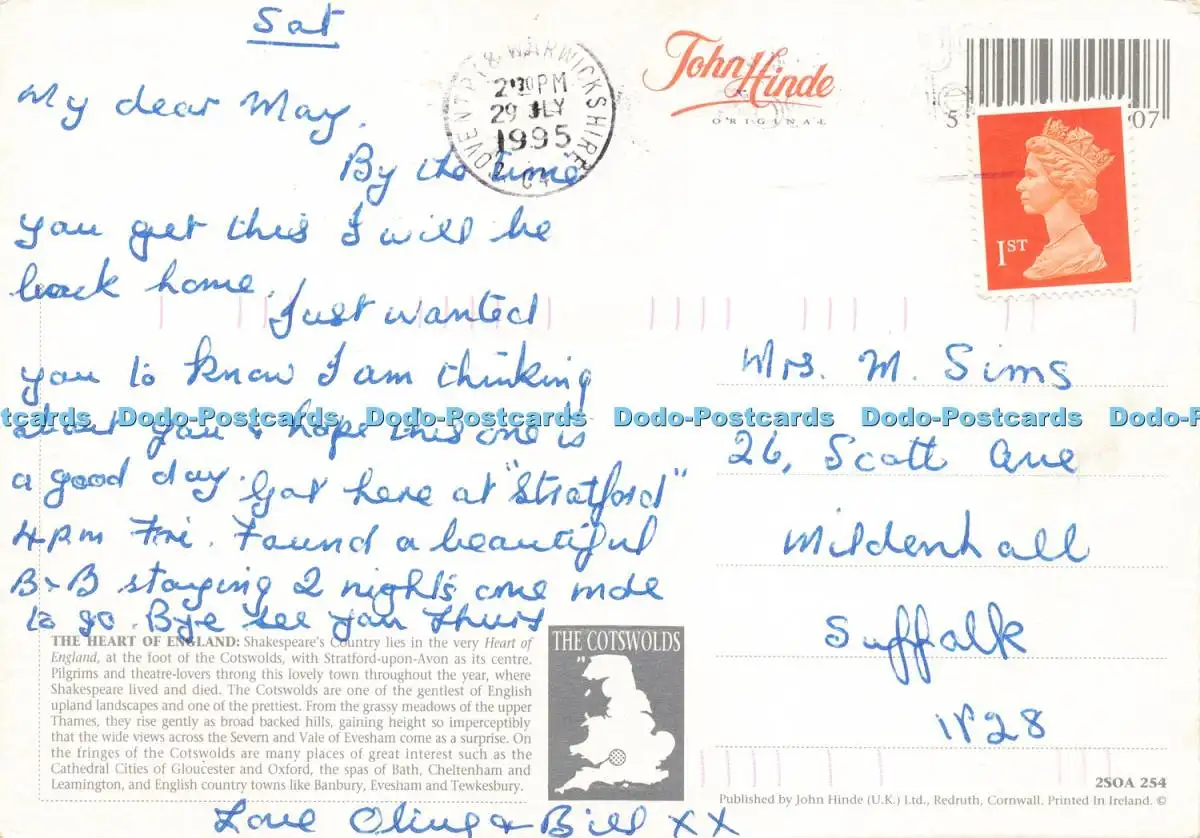 Sat
My dear May.
By the time
you get this I will be
back home.
Just wanted
you to know I am thinking
about you & hope this one is
a good day. Got here at "Stratford"
4pm Fri. Found a beautiful
B&B staying 2 nights one more
to go. Bye see you Thurs
Love Olive & Bill XX
COVENTRY & WARWICKSHIRE
2.30PM
29 JLY
1995
John Hinde
ORIGINAL
5
07
1ST
Mrs. M. Sims
26, Scott Ave
Mildenhall
Suffolk
IP28
Dodo-Postcards Dodo-Postcards Dodo-Postcards Dodo-Postcards
THE HEART OF ENGLAND: Shakespeare's Country lies in the very Heart of
England, at the foot of the Cotswolds, with Stratford-upon-Avon as its centre.
Pilgrims and theatre-lovers throng this lovely town throughout the year, where
Shakespeare lived and died. The Cotswolds are one of the gentlest of English
upland landscapes and one of the prettiest. From the grassy meadows of the upper
Thames, they rise gently as broad backed hills, gaining height so imperceptibly
that the wide views across the Severn and Vale of Evesham come as a surprise. On
the fringes of the Cotswolds are many places of great interest such as the
Cathedral Cities of Gloucester and Oxford, the spas of Bath, Cheltenham and
Leamington, and English country towns like Banbury, Evesham and Tewkesbury.
THE COTSWOLDS
2SOA 254
Published by John Hinde (U.K.) Ltd., Redruth, Cornwall. Printed In Ireland. ©